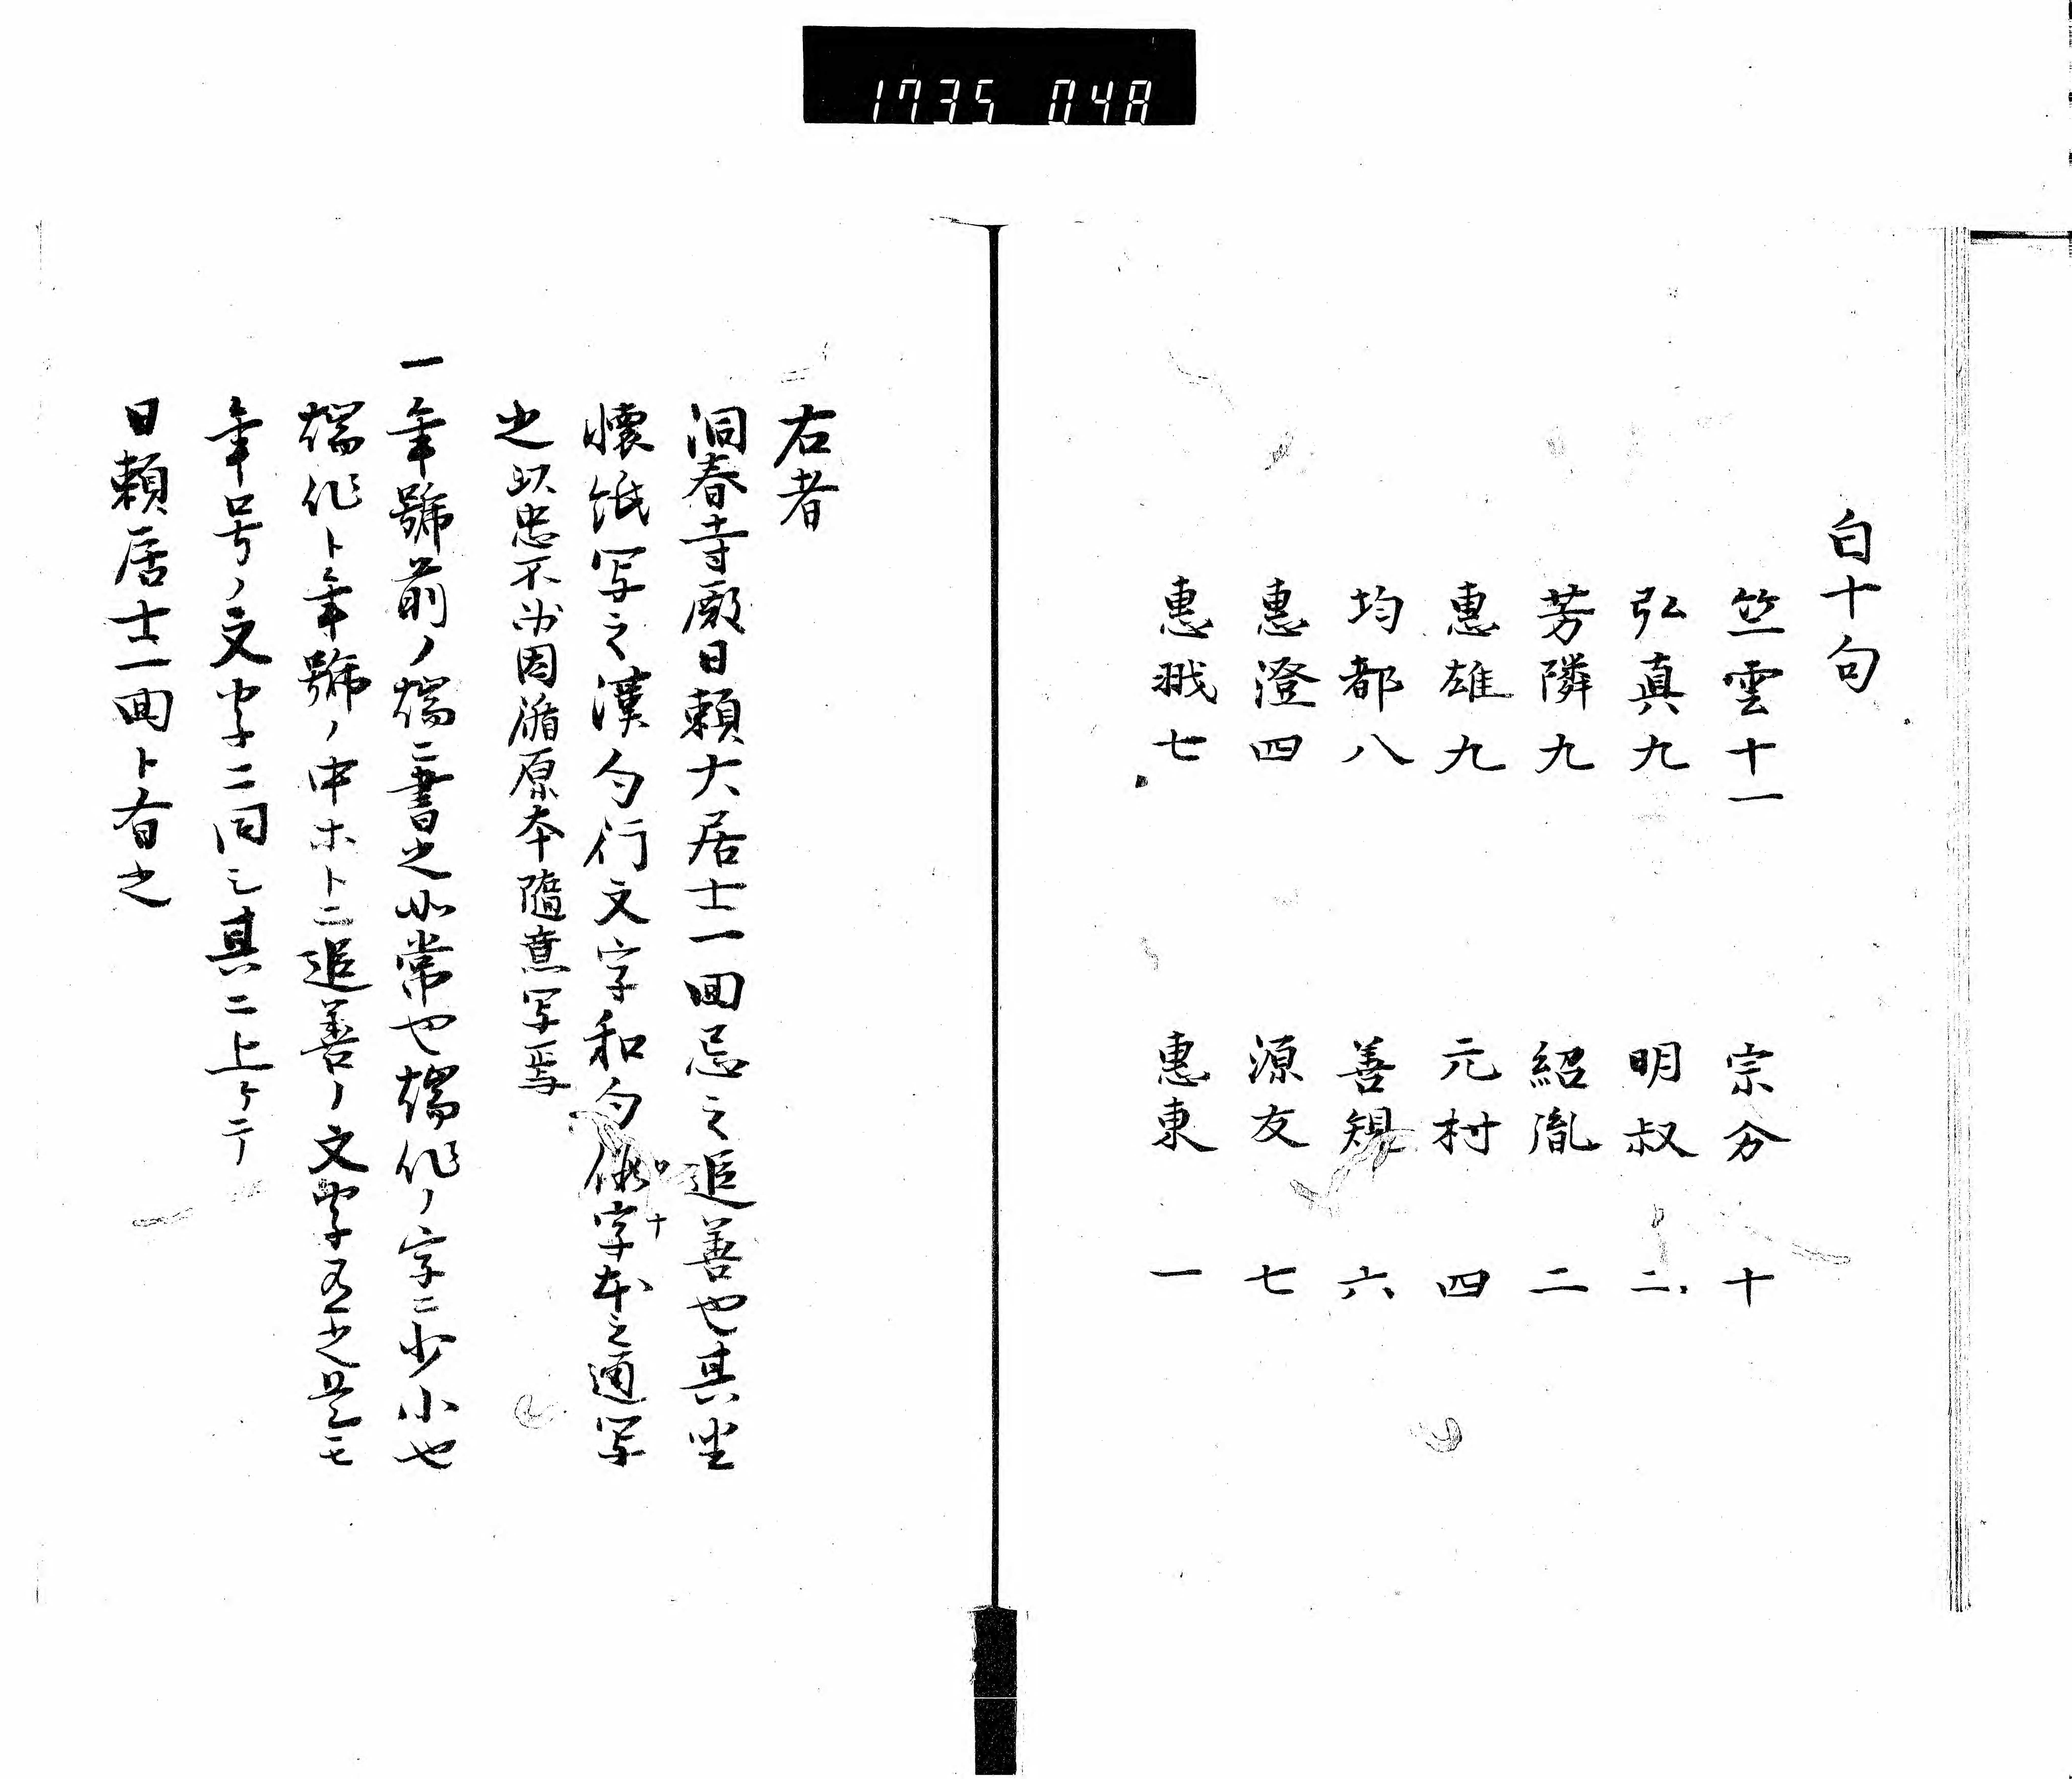 1735 048
白十句
竺雲十一 宗分 十
弘真九 明叔 二
芳隣九 紹胤 二
惠雄九 元村 四
均都八 善規 六
惠澄四 源友 七
惠戩七 惠東 一
右者
洞春寺殿日頼大居士一回忌之追善也其坐
懐紙写之漢句行文字和句假字本之通写
之以忠不為因循原本隨意写焉
一年號前ノ端ニ書之如常也端作ノ字ニ少小也
端作ト年號ノ中ホトニ追善ノ文字有之是モ
年号ノ文字ニ同シ其ニ上ケテ
日頼居士一回ト有之